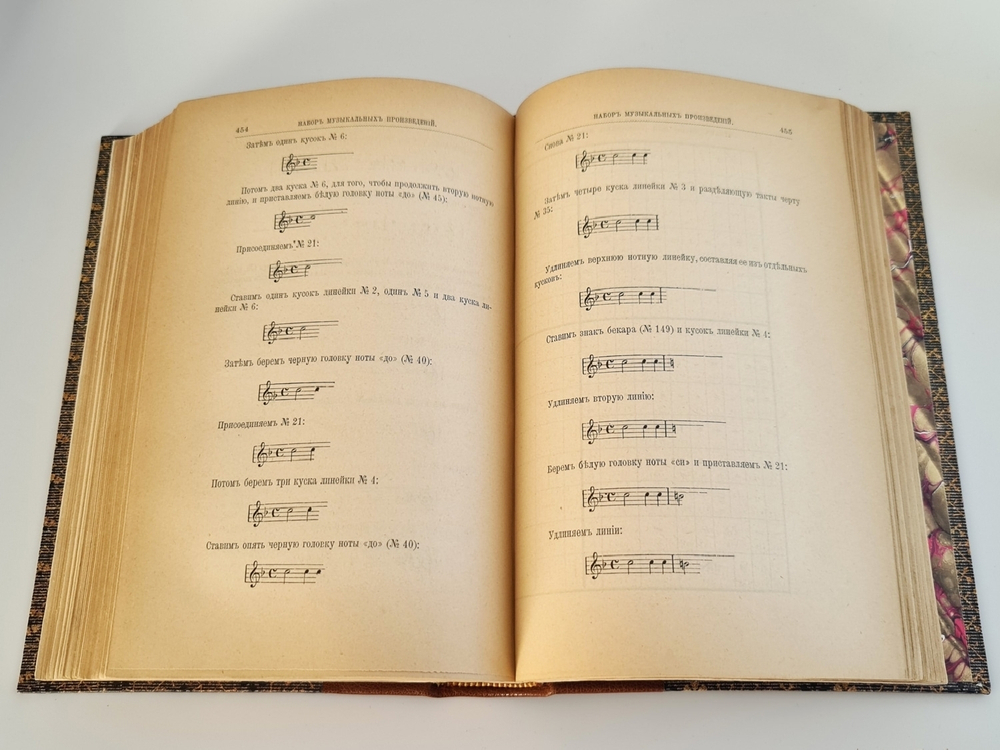 454
НАБОРЪ МУЗЫКАЛЬНЫХЪ ПРОИЗВЕДЕНІЙ.
Затѣмъ одинъ кусокъ № 6:
Потомъ два куска № 6, для того, чтобы продолжить вторую нотную
линію, и приставляемъ бѣлую головку ноты «до» (№ 45):
Присоединяемъ № 21:
Ставимъ одинъ кусокъ линейки № 2, одинъ № 5 и два куска ли-
нейки № 6:
Затѣмъ беремъ черную головку ноты «до» (№ 40):
Присоединяемъ № 21:
Потомъ беремъ три куска линейки № 4:
Ставимъ опять черную головку ноты «до» (№ 40):
НАБОРЪ МУЗЫКАЛЬНЫХЪ ПРОИЗВЕДЕНІЙ.
455
Снова № 21:
Затѣмъ четыре куска линейки № 3 и раздѣляющую такты черту
№ 35:
Удлиняемъ верхнюю нотную линейку, составляя ее изъ отдѣльныхъ
кусковъ:
Ставимъ знакъ бекара (№ 149) и кусокъ линейки № 4:
Удлиняемъ вторую линію:
Беремъ бѣлую головку ноты «си» и приставляемъ № 21:
Удлиняемъ линіи: